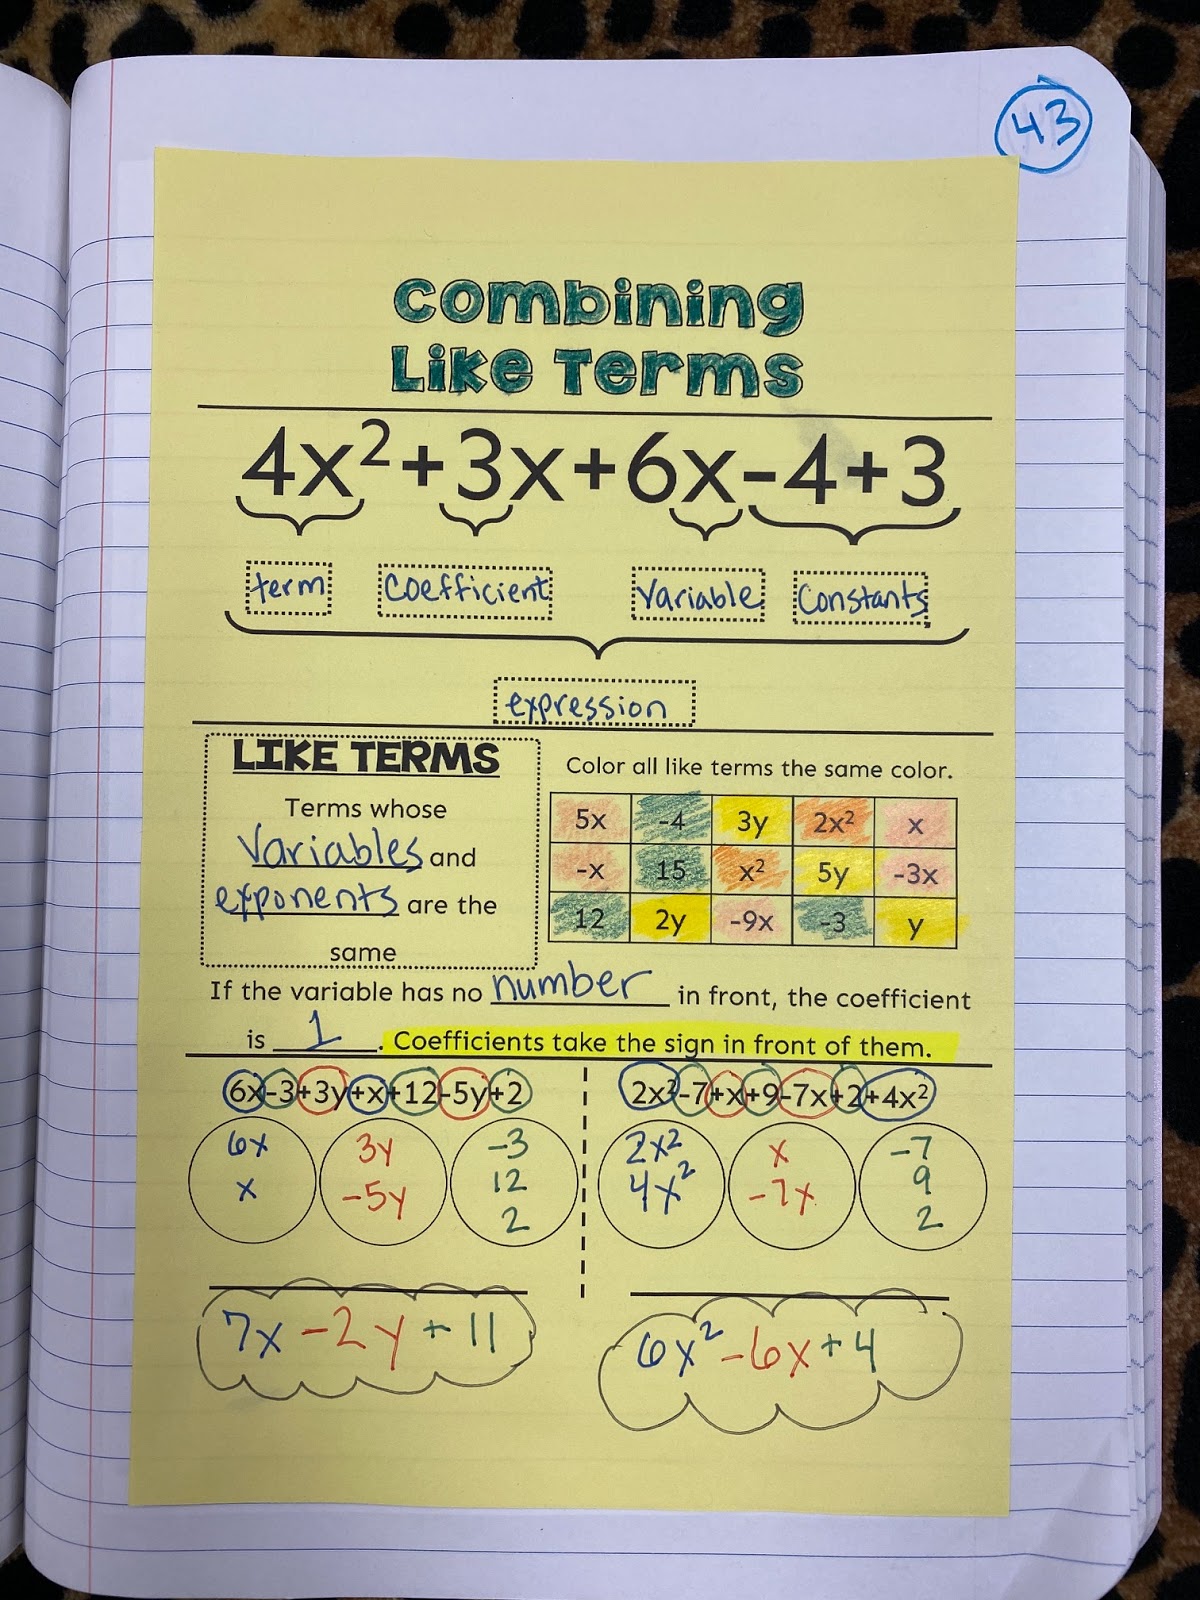 43
Combining
Like Terms
4x²+3x+6x-4+3
term Coefficient Variable Constants
expression
LIKE TERMS
Terms whose
Variables and
exponents are the
same
Color all like terms the same color.
5x -4 3y 2x² x
-x 15 x² 5y -3x
12 2y -9x -3 y
If the variable has no number in front, the coefficient
is 1. Coefficients take the sign in front of them.
6x-3+3y+x+12-5y+2
6x 3y -3
x -5y 12
2
7x -2y +11
2x²-7+x+9-7x+2+4x²
2x² x -7
4x² -7x 9
2
6x² -6x +4